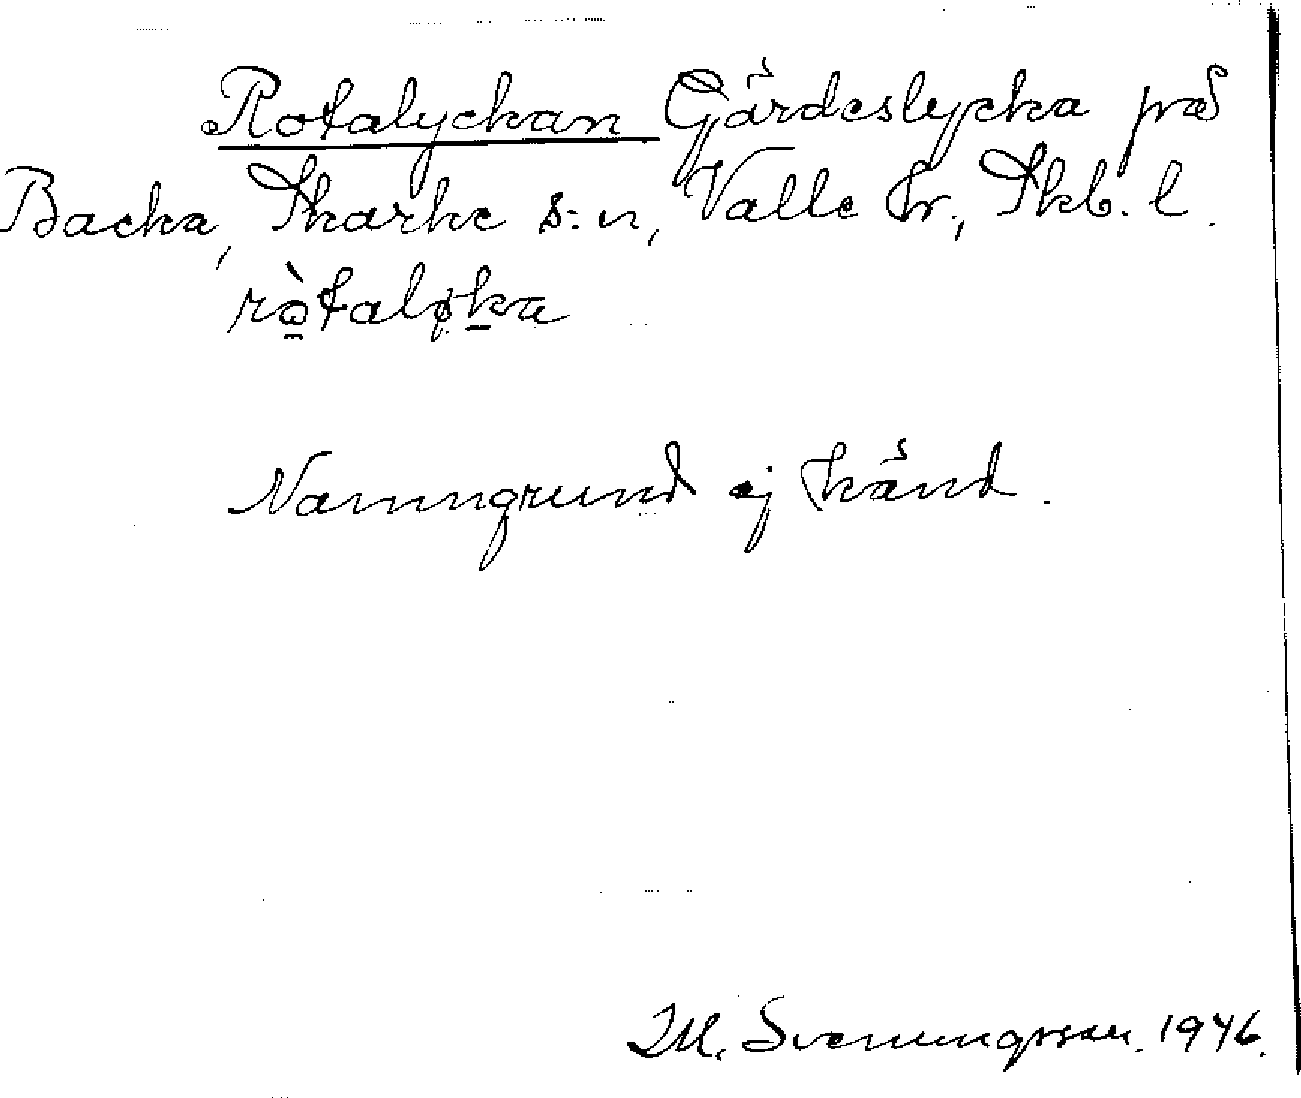 Rotalyckan Gärdeslycka på
Backa, Skarke s:n, Valle hr., Skb. l.
ròtaløka
Namngrund ej känd.
M. Svenungsson. 1946.